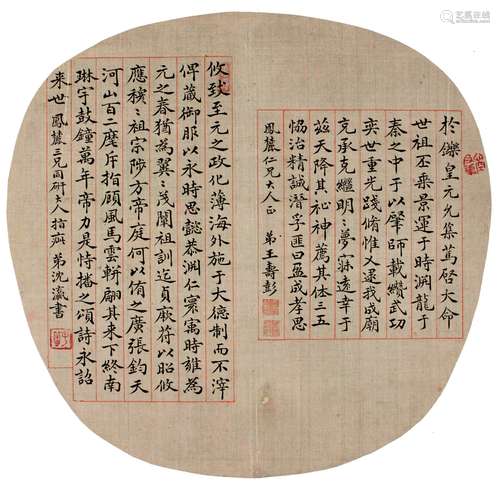 於鑠皇元允集篤啓大命
世祖丕乘景運于時淵龍于
秦之中于以肇師載纘武功
奕世重光踐脩惟乂逮我成廟
克承克繼明〻夢寐遠幸于
茲天降其祕神薦其休三五
協治精誠潛孚匪曰盈成孝思
鳳麓仁兄大人正 弟王壽彭
攸致至元之政化薄海外施于大德制而不滓
俾蕆御服以永時思懿恭淵仁寰寓時雍為
元之春猶為翼〻茂闡祖訓迄貞厥符以昭攸
應穆〻祖宗陟方帝庭何以侑之廣張鈞天
河山百二麾斥指顧風馬雲軿翩其來下終南
琳宇鼓鐘萬年帝力是恃播之頌詩永詔
來世 鳳麓三兄同研大人指疵 弟沈瀛書